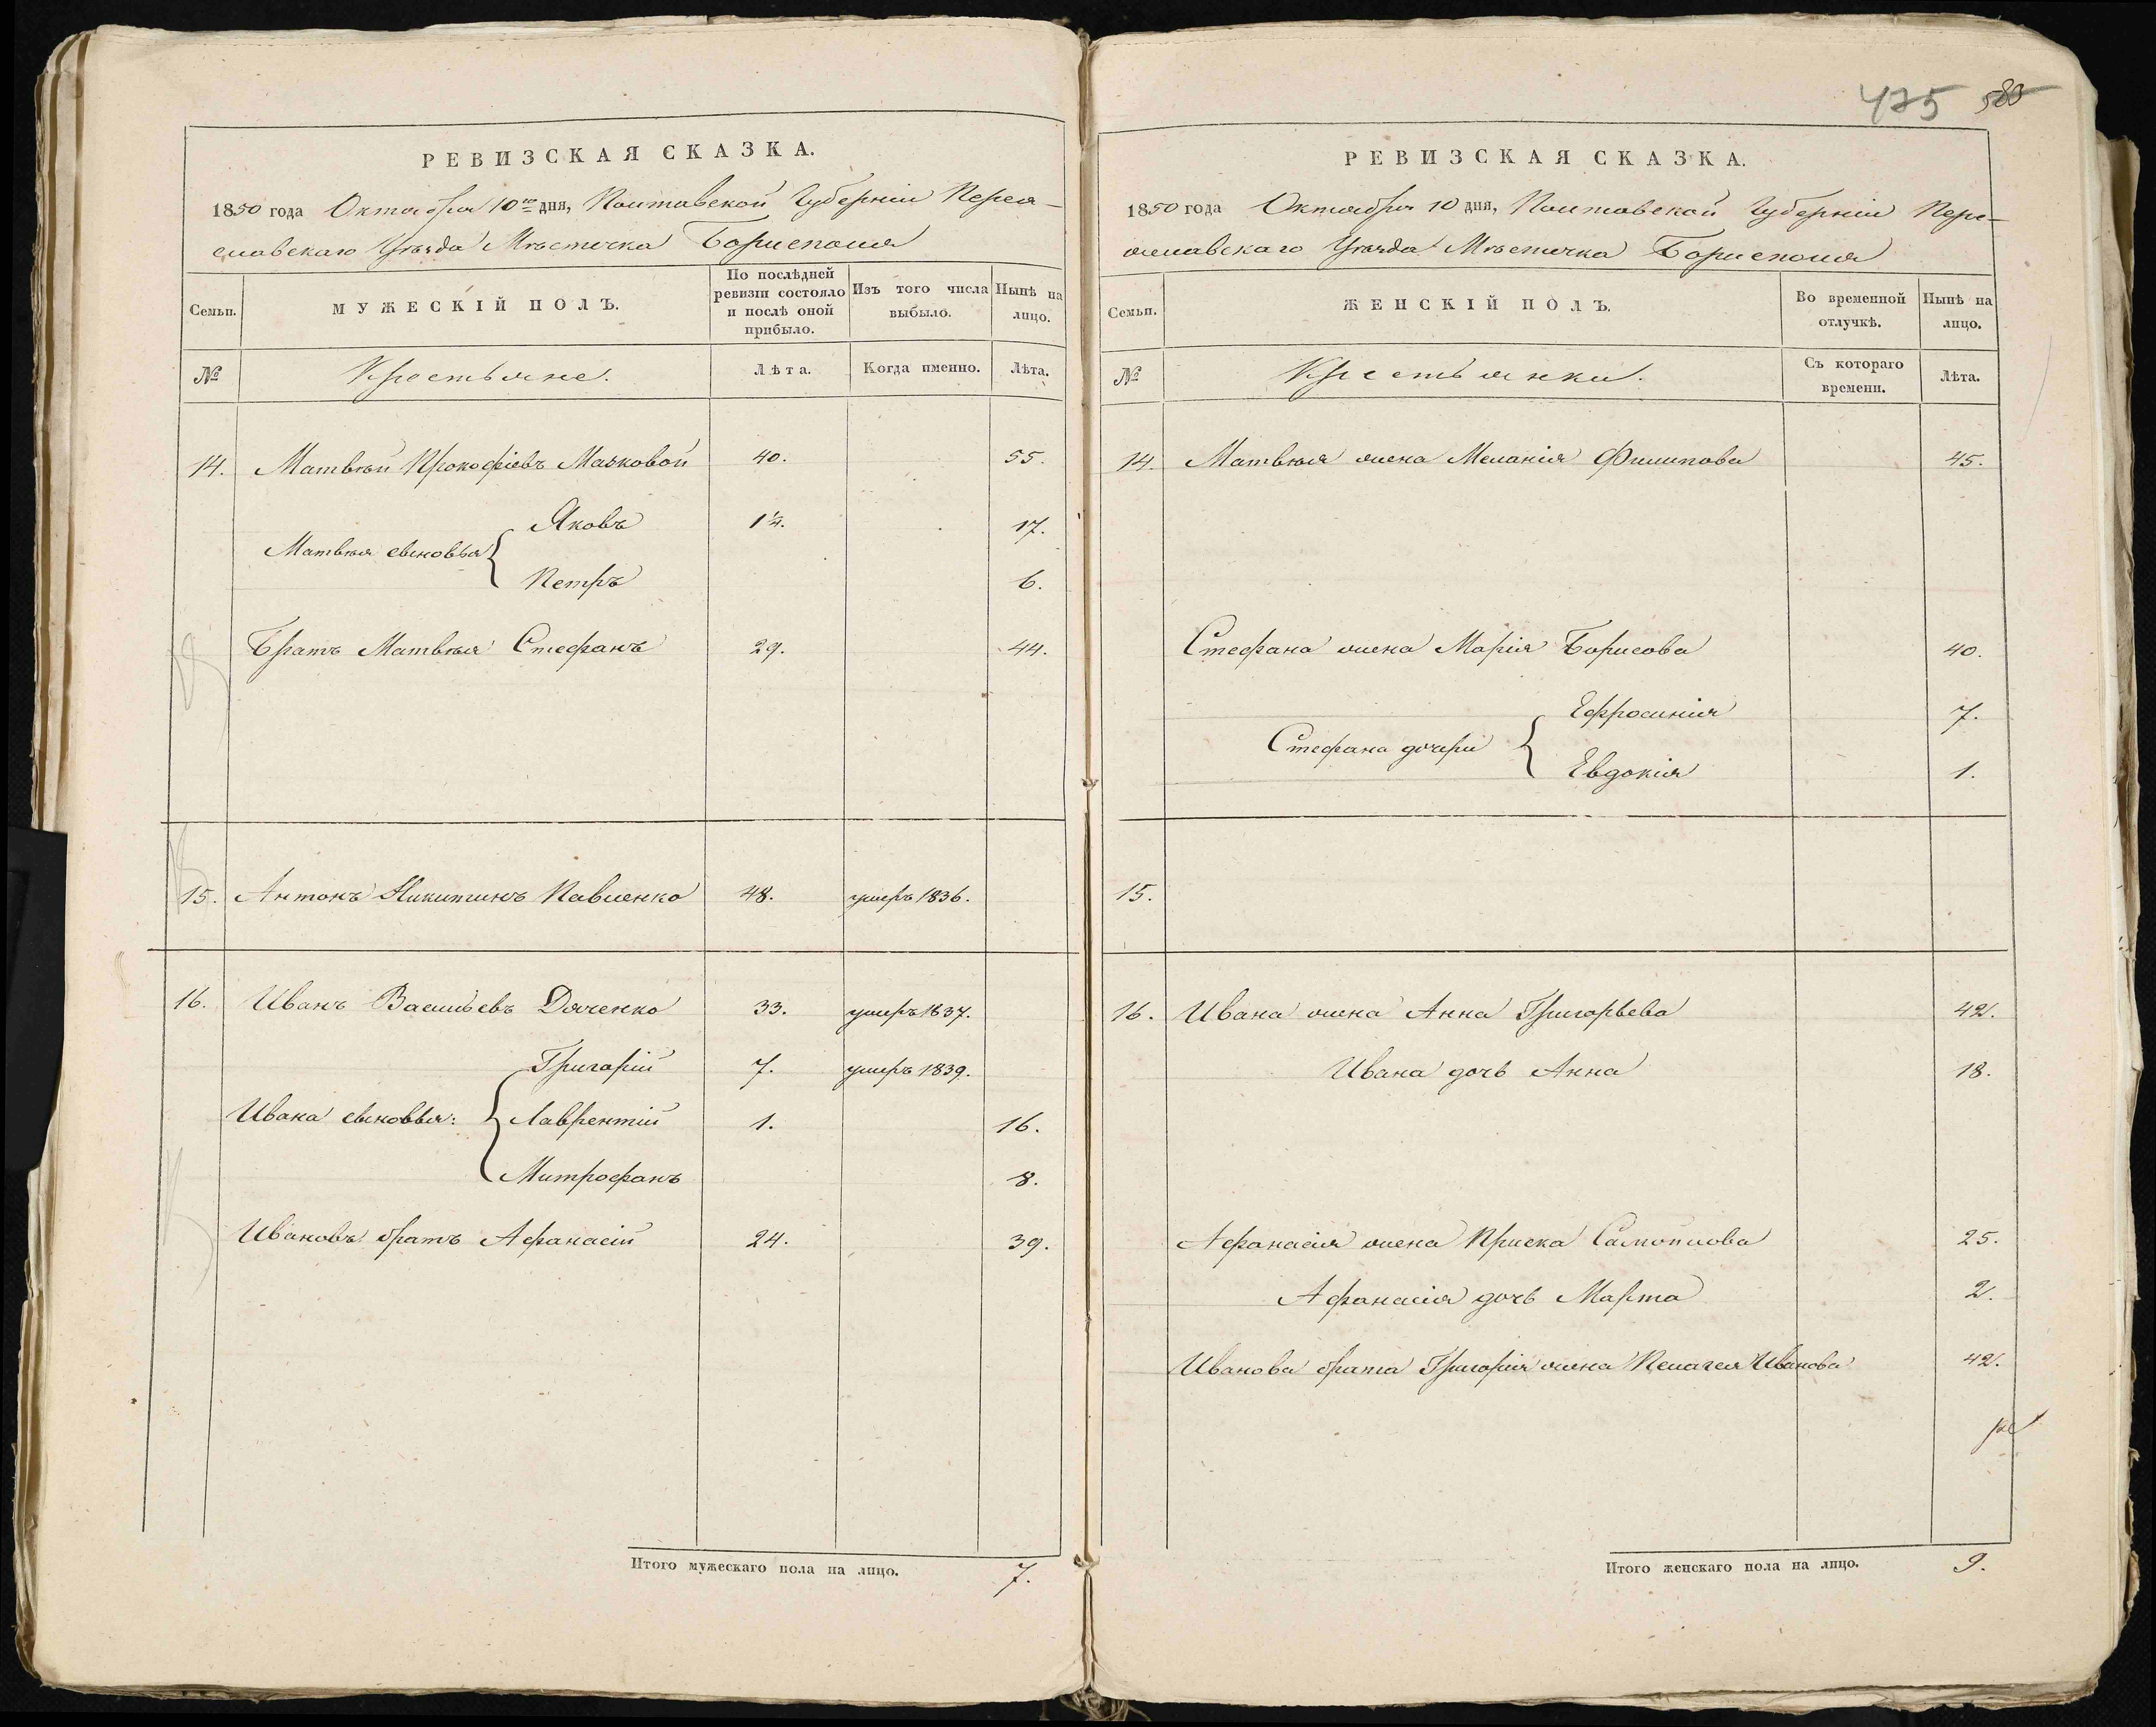 475 583
РЕВИЗСКАЯ СКАЗКА.
1850 года Октября 10го дня, Полтавской Губерніи Перея-
славскаго Уѣзда Мѣстечка Борисполя
Семьи.
МУЖЕСКІЙ ПОЛЪ.
По послѣдней ревизіи состояло и послѣ оной прибыло.
Изъ того числа выбыло.
Нынѣ на лицо.
№ Крестьяне. Лѣта. Когда именно. Лѣта.
14. Матвѣй Прокофіевъ Мачковой 40. 55.
Яковъ 1¼. 17.
Матвѣя сыновья
Петръ 6.
Братъ Матвѣя Стефанъ 29. 44.
15. Антонъ Никитинъ Павленко 48. умеръ 1836.
16. Иванъ Васильевъ Дяченко 33. умеръ 1837.
Григорій 7. умеръ 1839.
Ивана сыновья: Лаврентій 1. 16.
Митрофанъ 8.
Ивановъ братъ Афанасій 24. 39.
Итого мужескаго пола на лицо. 7.
РЕВИЗСКАЯ СКАЗКА.
1850 года Октября 10 дня, Полтавской Губерніи Пере-
яславскаго Уѣзда Мѣстечка Борисполя
Семьи.
ЖЕНСКІЙ ПОЛЪ.
Во временной отлучкѣ.
Нынѣ на лицо.
№ Крестьянки. Съ котораго времени. Лѣта.
14. Матвѣя жена Меланія Филипова 45.
Стефана жена Марія Борисова 40.
Ефросинія 7.
Стефана дочери
Евдокія 1.
15.
16. Ивана жена Анна Григорьева 42.
Ивана дочь Анна 18.
Афанасія жена Приска Самойлова 25.
Афанасія дочь Марта 2.
Иванова брата Григорія жена Пелагея Иванова 42.
Итого женскаго пола на лицо. 9.